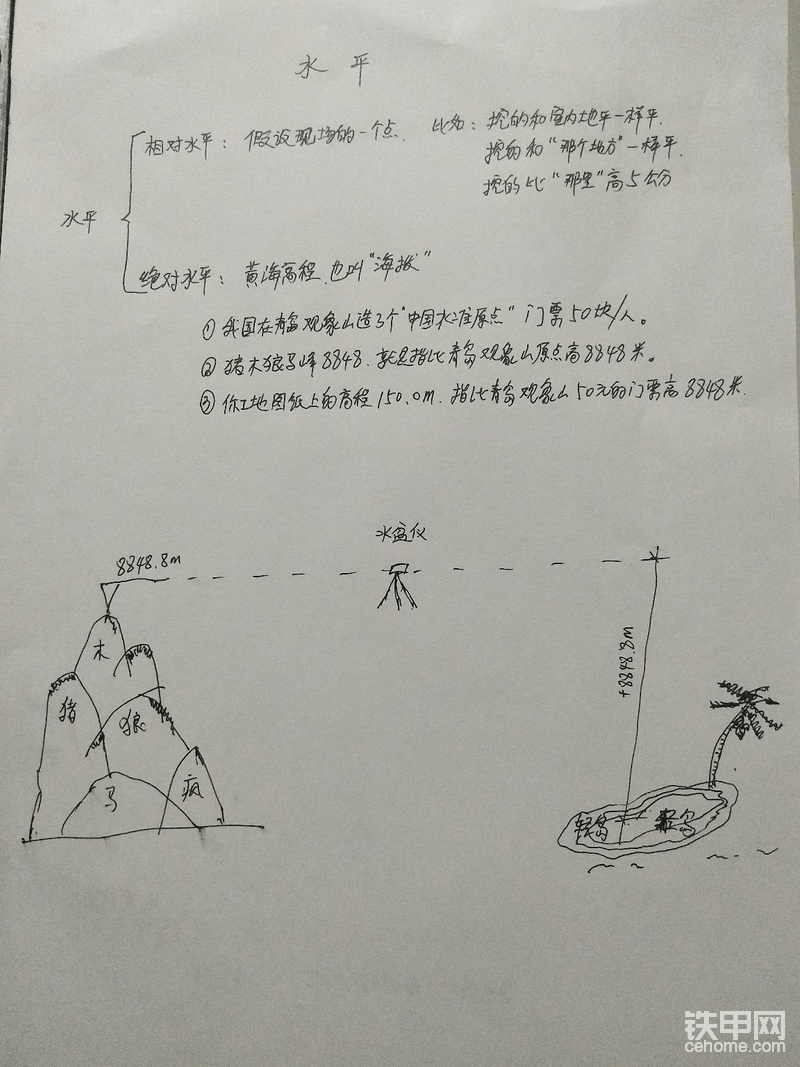 水平
相对水平: 假设现场的一个点. 比如: 挖的和室内地平一样平.
挖的和"那个地方"一样平.
挖的比"那里"高5公分
水平
绝对水平: 黄海高程.也叫"海拔"
① 我国在青岛观象山造了个"中国水准原点" 门票50块/人。
② 猪木狼马峰8848.就是指比青岛观象山原点高8848米。
③ 你工地图纸上的高程150.0m.指比青岛观象山50元的门票高8848米.
水准仪
8848.8m
+8848.8m
木
猪
狼
马
疯
青岛
铁甲网
cehome.com